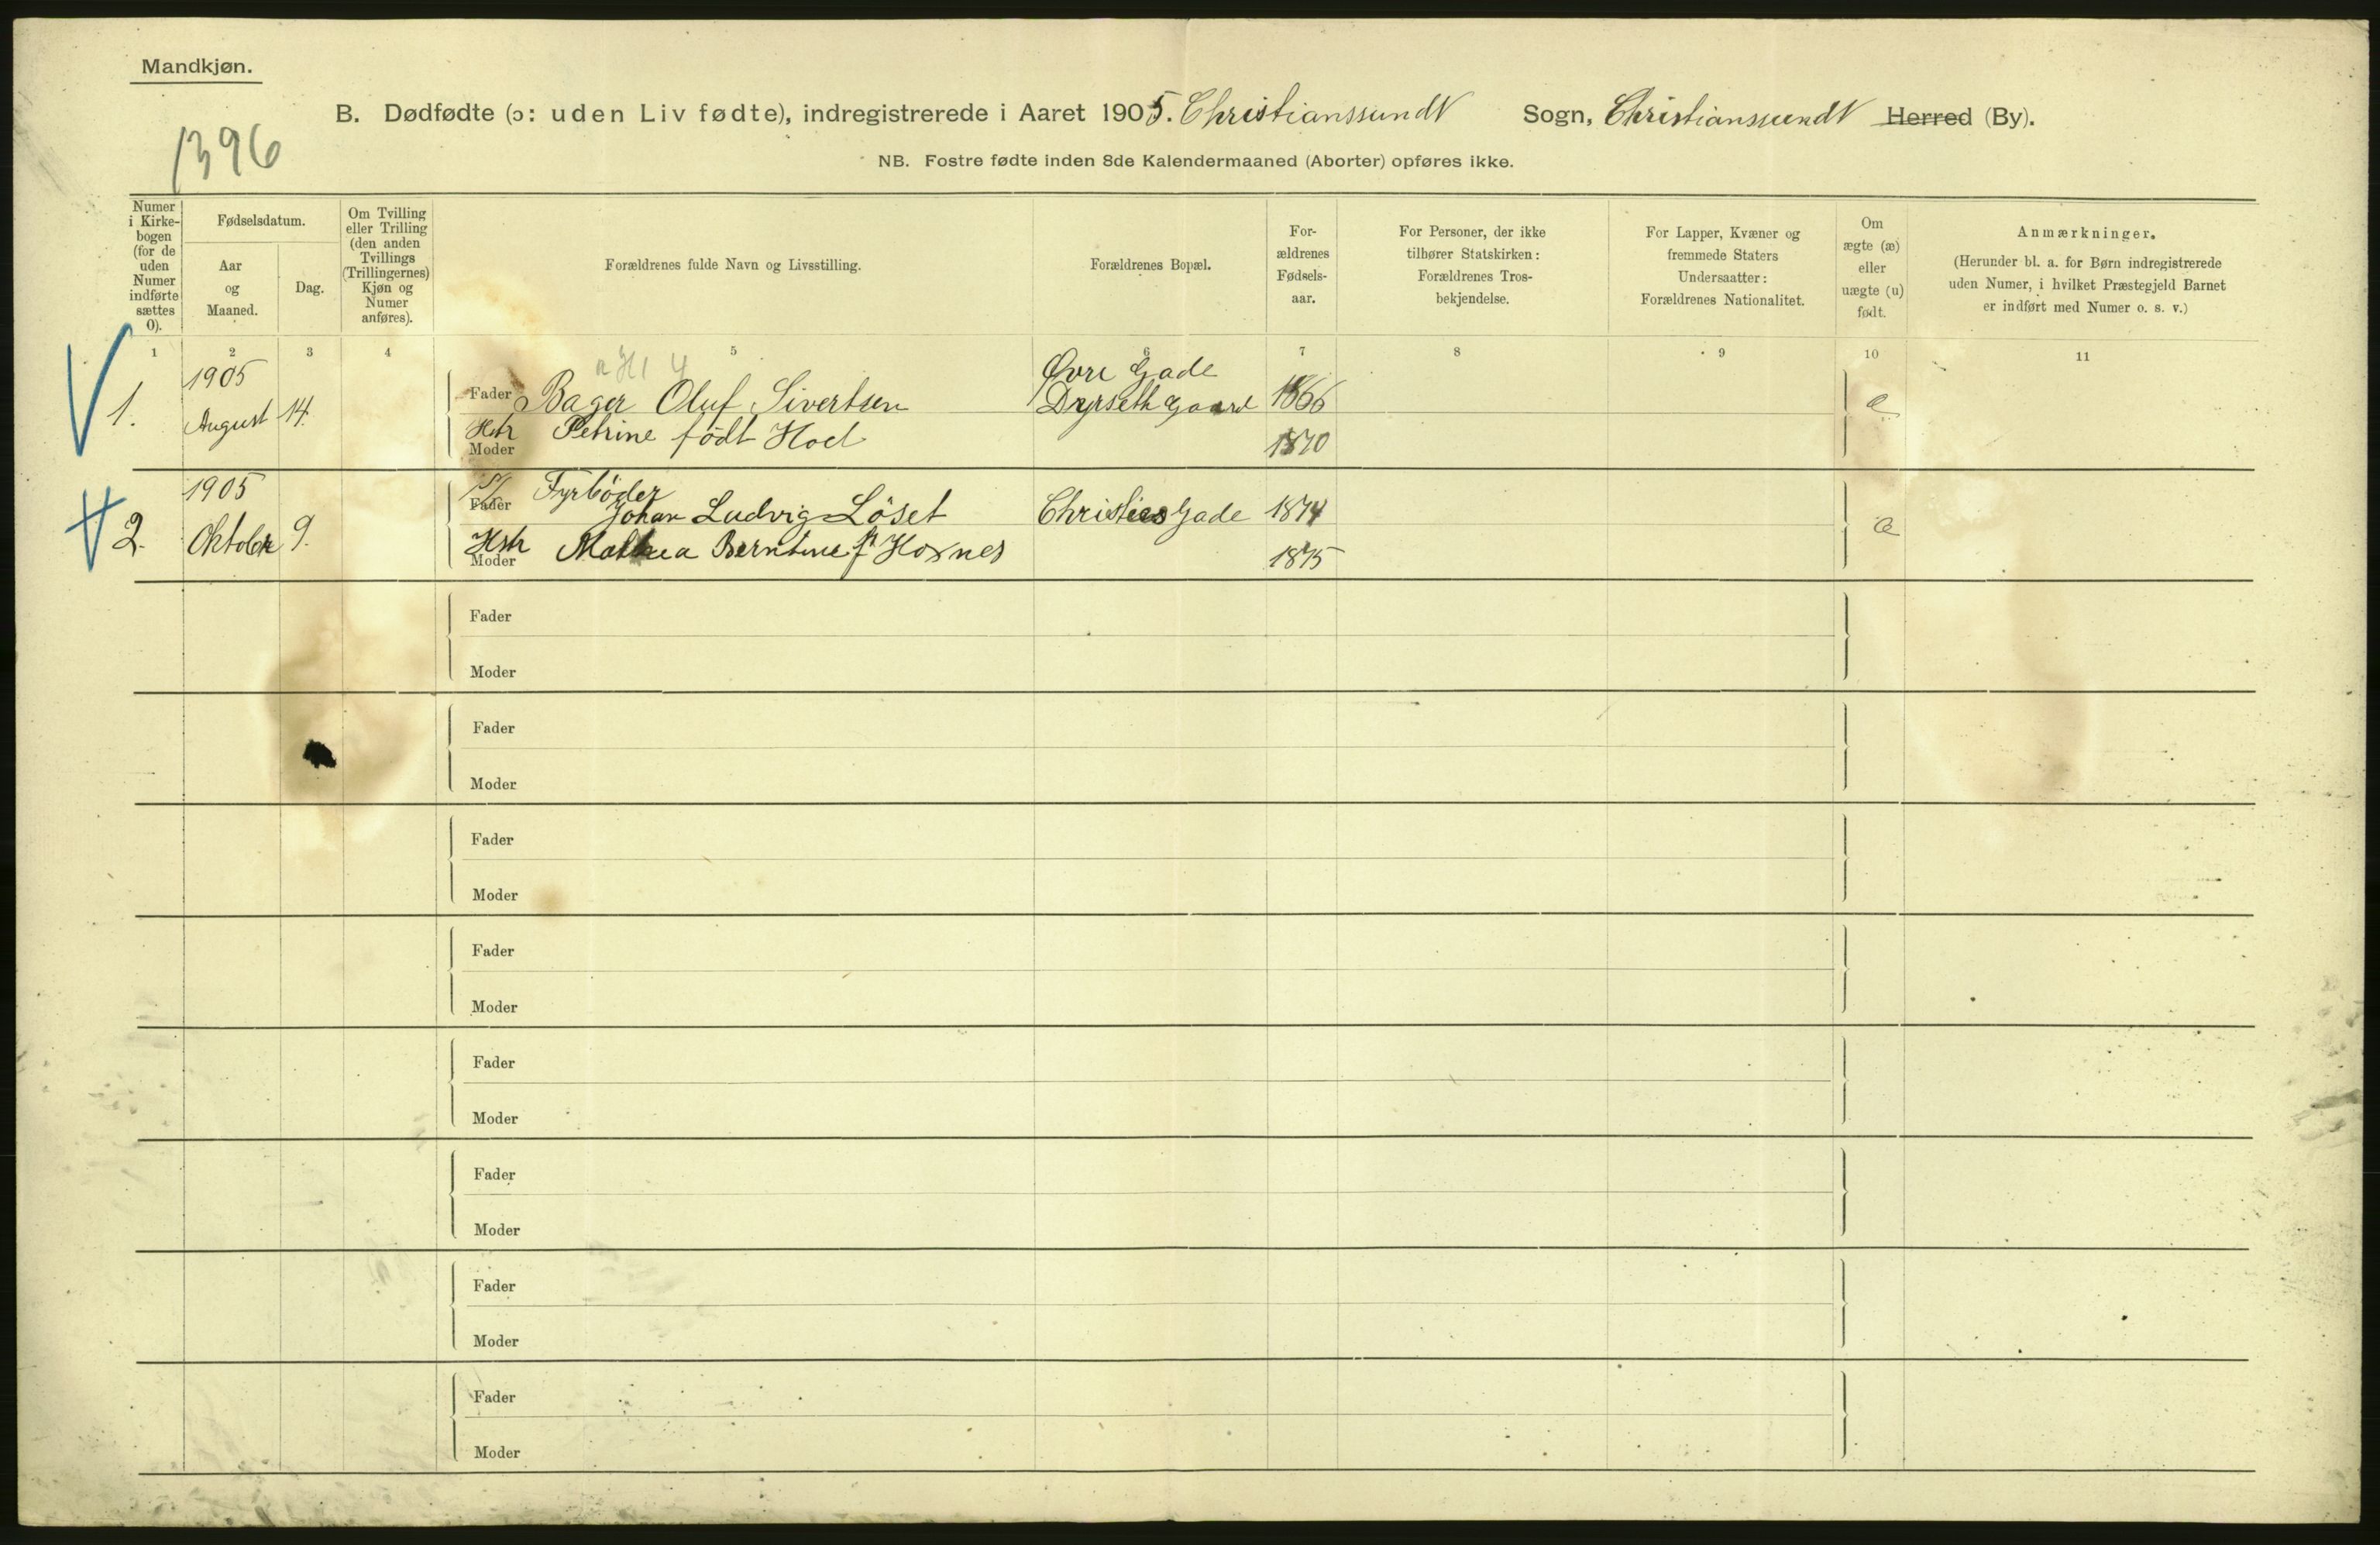 Mandkjøn.
B. Dødfødte (ɔ: uden Liv fødte), indregistrerede i Aaret 1905. ChristianssundN Sogn, ChristianssundN Herred (By).
1396
NB. Fostre fødte inden 8de Kalendermaaned (Aborter) opføres ikke.
Numer i Kirkebogen (for de uden Numer indførte sættes 0).
Fødselsdatum.
Aar og Maaned.
Dag.
Om Tvilling eller Trilling (den anden Tvillings (Trillingernes) Kjøn og Numer anføres).
Forældrenes fulde Navn og Livsstilling.
Forældrenes Bopæl.
For-ældrenes Fødsels-aar.
For Personer, der ikke tilhører Statskirken: Forældrenes Tros-bekjendelse.
For Lapper, Kvæner og fremmede Staters Undersaatter: Forældrenes Nationalitet.
Om ægte (æ) eller uægte (u) født.
Anmærkninger.
(Herunder bl. a. for Børn indregistrerede uden Numer, i hvilket Præstegjeld Barnet er indført med Numer o. s. v.)
1 2 3 4 5 6 7 8 9 10 11
1905 Øvre Gade
1. August 14. Fader Bager Oluf Sivertsen Dyrseth Gaard 1866 æ
Hstr Moder Petrine født Hoel 1870
1905 Fyrbøder
2. Oktober 9. Fader Johan Ludvig Löset Christies Gade 1874 æ
Hstr Moder Mathea Berntine f. Hoxnes 1875
Fader
Moder
Fader
Moder
Fader
Moder
Fader
Moder
Fader
Moder
Fader
Moder
Fader
Moder
Fader
Moder